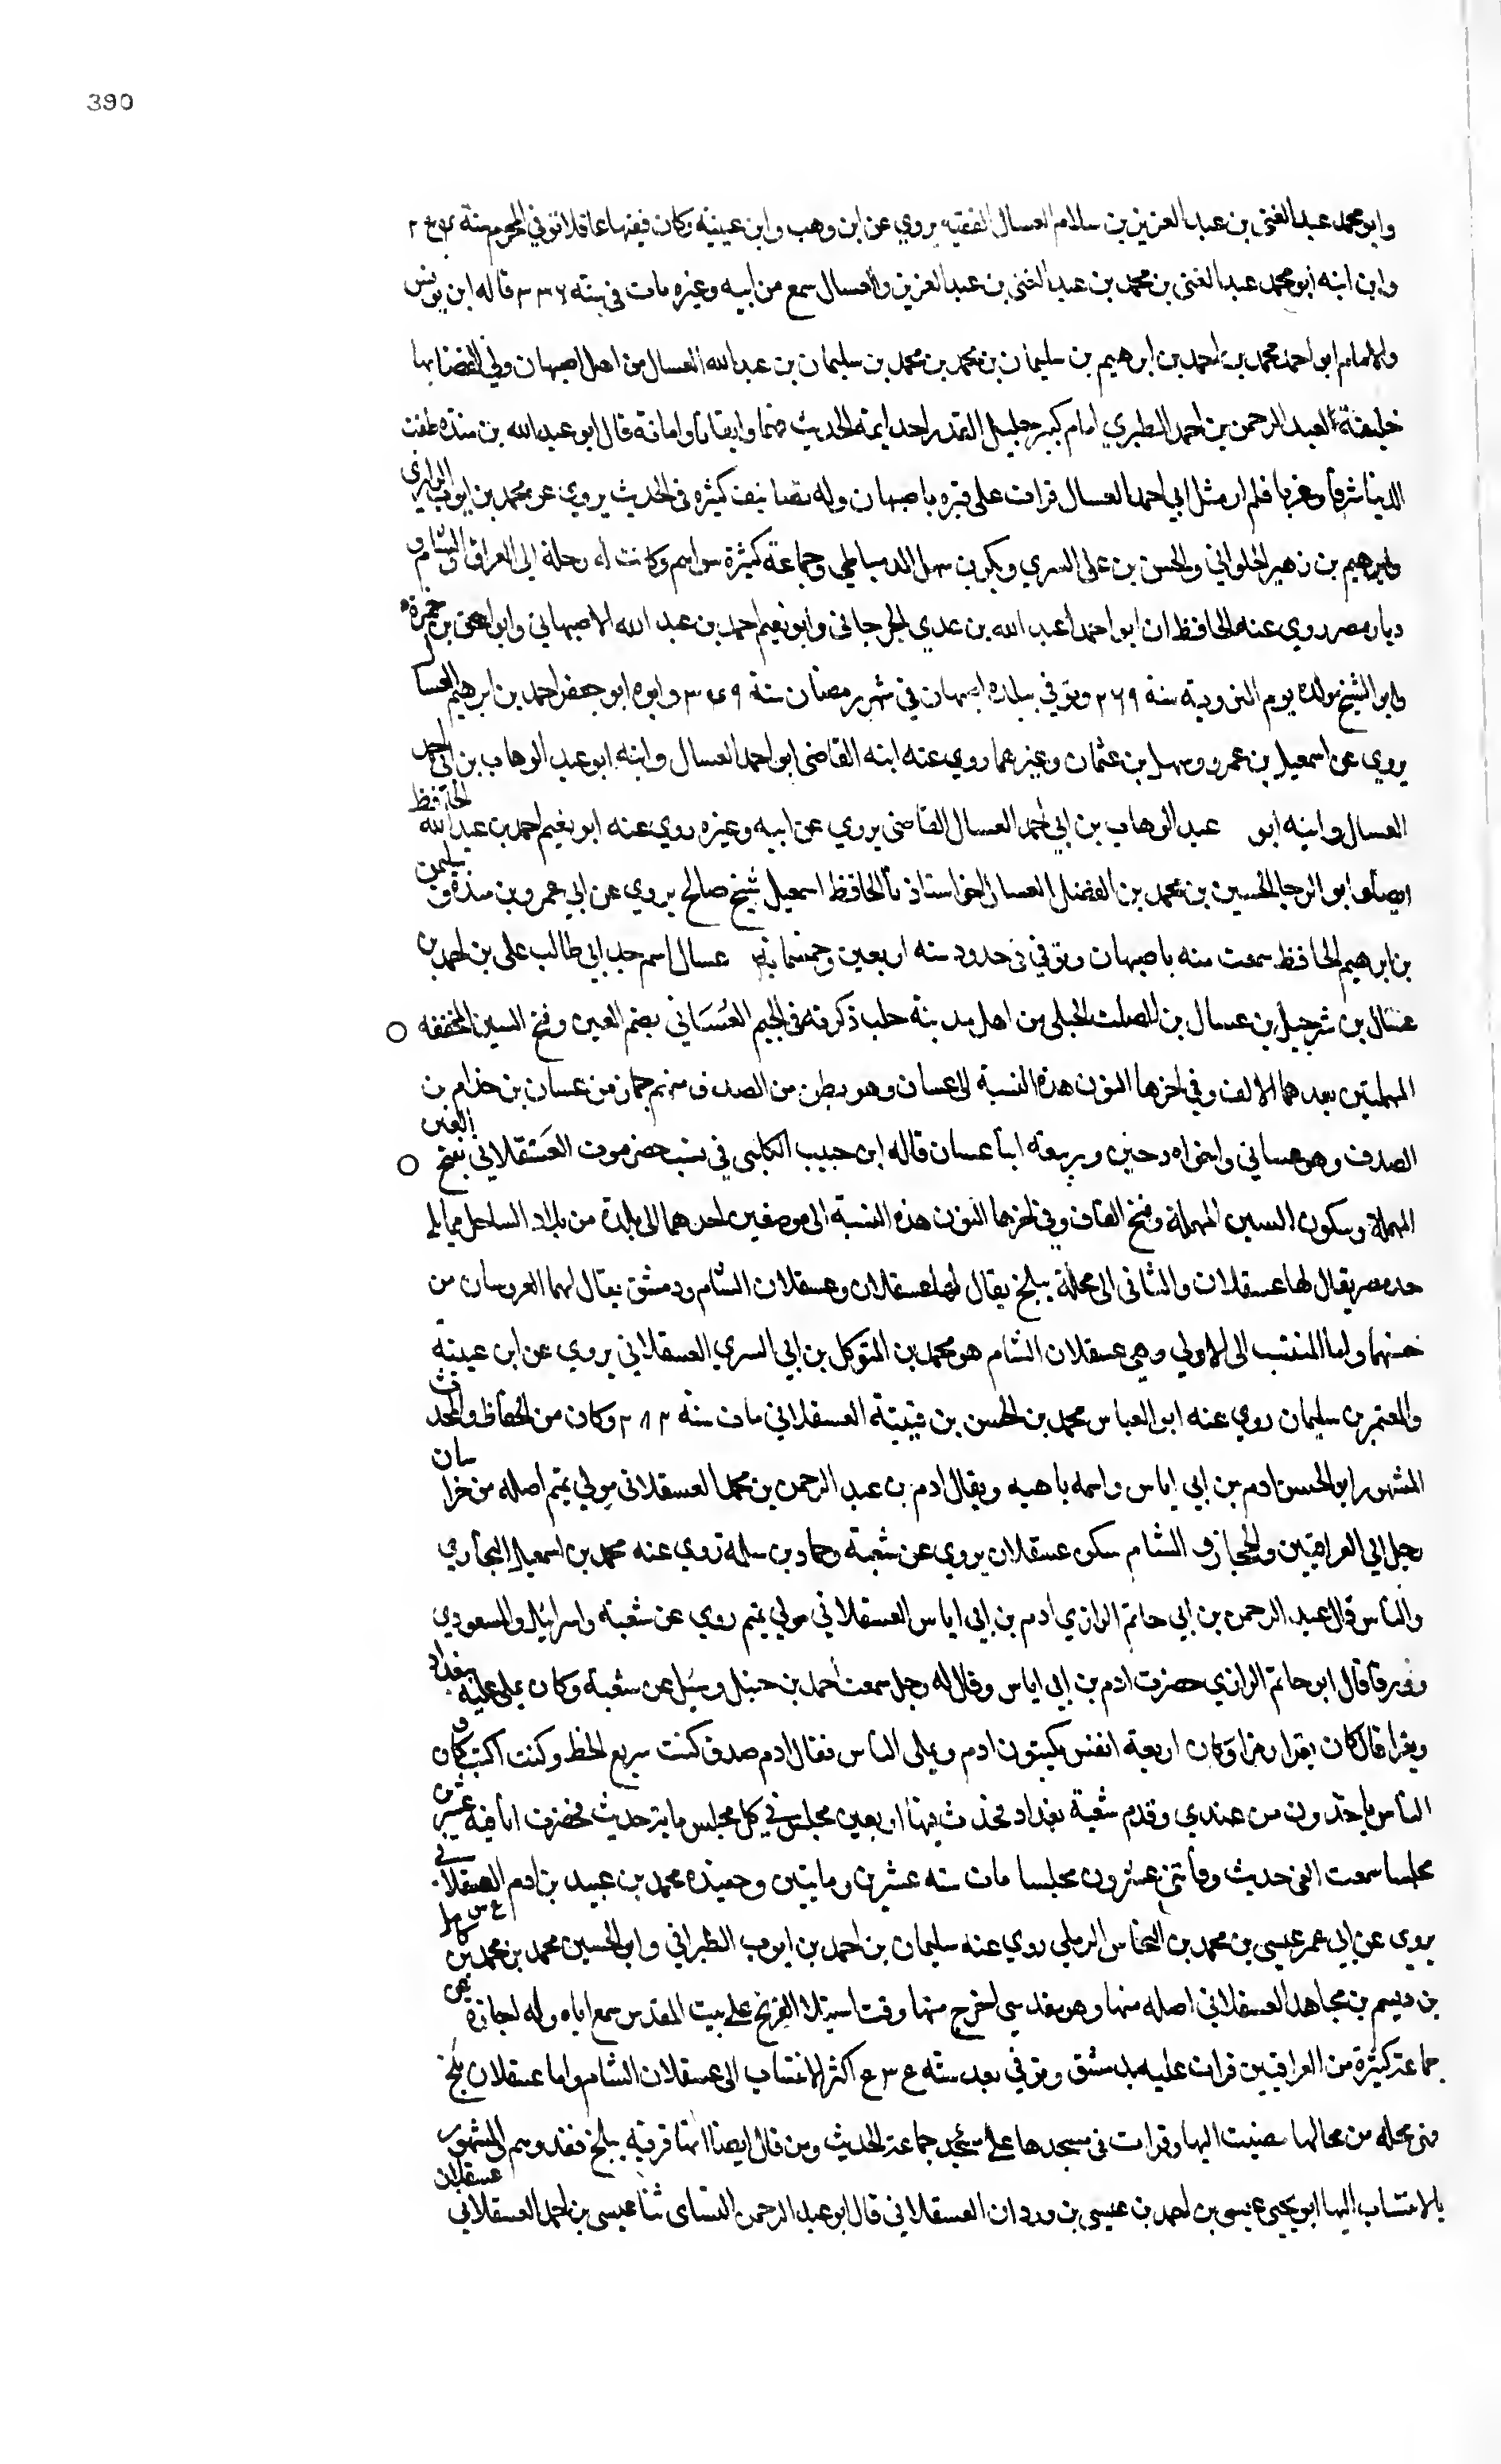 390
وابو محمد عبد الغني بن عبد العزيز بن سلام العسال الفقيه يروي عن ابن وهب وابن عيينة وكان فقيها عاقلا توفي في المحرم سنة
وابن ابنه ابو محمد عبد الغني بن محمد بن عبد الغني بن عبد العزيز والعسال سمع من ابيه وغيره مات في سنة ٣٣٦ قاله ابن يونس
والامام ابو احمد محمد بن احمد بن ابرهيم بن سليمان بن محمد بن محمد بن سليمان بن عبد الله العسال من اهل اصبهان ولي القضا بها
خليفة لعبد الرحمن بن احمد الطبري امام كبير جليل القدر احد ايمة الحديث فهما واتقانا وامانة قال ابو عبد الله بن منده طفت
الدينا شرقا وغربا فلم ار مثل ابي احمد العسال قرات على قبره باصبهان وله تصانيف كثيرة في الحديث يروي عن محمد بن ايوب الرازي
وابرهيم بن زهير الحلواني والحسن بن علي السري وبكر بن سهل الدمياطي وجماعة كثيرة سواهم وكانت له رحلة الى العراق والشام و
ديار مصر روي عنه الحافظان ابو احمد عبد الله بن عدي الجرجاني وابو نعيم احمد بن عبد الله الاصبهاني وابو اسحق بن حمزة
وابو الشيخ مولده يوم التروية سنة ٢٦٩ وتوفي ببلده اصبهان في شهر رمضان سنة ٣٤٩ وابوه ابو جعفر احمد بن ابرهيم العسال
يروي عن اسمعيل بن عمرو وسهل بن عثمان وغيرهما روي عنه ابنه القاضي ابو احمد العسال وابنه ابو عبد الوهاب بن ابي احمد
العسال وابنه ابو عبد الوهاب بن ابي احمد العسال القاضي يروي عن ابيه وغيره روي عنه ابو نعيم احمد بن عبد الله الحافظ
ايضا وابو الرجا الحسين بن محمد بن الفضل العسال اخو استاذنا الحافظ اسمعيل شيخ صالح يروي عن ابي عمرو بن مندة و سليمن
بن ابرهيم الحافظ سمعت منه باصبهان وتوفي في حدود سنة اربعين وخمسماية عسال اسم جد ابي طالب علي بن احمد بن
عسال بن شرجيل بن عسال بن الصلت الجبلي من اهل مدينة حلب ذكرته في الجيم العُسَاني بضم العين وفتح السين المخففه
المهملتين بعدهما الالف وفي اخرها النون هذه النسبة الى عسان وهو بطن من الصدف منهم جمان من عسان بن حذام بن
الصدف وهو عساني واخواه دحين وربيعة ابنا عسان قاله ابن حبيب الكلبي في نسب حضرموت العَسْقلاني بفتح العين
المهملة وسكون السين المهملة وفتح القاف وفي اخرها النون هذه النسبة الى موضعين احدهما الى بلدة من بلاد الساحل مما يلي
حد مصر يقال لها عسقلان والثاني الى محلة ببلخ يقال لها عسقلان وعسقلان الشام ودمشق يقال لهما العروسان من
حسنهما واما المنتسب الى الاولي وهي عسقلان الشام هو محمد بن المتوكل بن ابي السري العسقلاني يروي عن ابن عيينة
والمعتمر بن سليمان روي عنه ابو العباس محمد بن الحسن بن قتيبة العسقلاني مات سنه ٢٨٣ وكان من الحفاظ والمحدث
المشهور ابو الحسن ادم بن ابي اياس واسمه باهيه ويقال ادم بن عبد الرحمن بن محمد العسقلاني مولي تميم اصله من خراسان
رحل الي العراقيين والحجاز و الشام سكن عسقلان يروي عن شعبة وحماد بن سلمة روي عنه محمد بن اسمعيل البخاري
والناس قال عبد الرحمن بن ابي حاتم الرازي ادم بن ابي اياس العسقلاني مولي تميم روي عن شعبة واسرائيل والمسعودي
وورقا قال ابو حاتم الرازي حضرت ادم بن ابي اياس وقال له رجل سمعت احمد بن حنبل وسيل عن شعبة وكان يملي عليه ببغداد
ويقرا قال كان يقرا وكان اربعة انفس يكتبون ادم و يملي الناس فقال ادم صدق كنت سريع الخط وكنت اكتب وكان
الناس ياخذون من عندي وقدم شعبة بغداد فحدث فيها اربعين مجلس في كل مجلس ماية حديث فحضرت انا فيه عشرين
مجلسا سمعت الفي حديث وفاتني عشرون مجلسا مات سنه عشرين ومايتين وحفيده محمد بن عبيد بن ادم العسقلاني
يروي عن ابي عمر عيسى بن محمد بن النحاس الرملي روي عنه سليمان بن احمد بن ايوب الطبراني وابو الحسين محمد بن محمد بن
بن ديسم بن مجاهد العسقلاني اصله منها وهو مقدسي اخرج منها وقت استيلا الفرنج على بيت المقدس سمع اباه وله اجازة عن
جماعة كثيرة من العراقيين قرات عليه بدمشق وتوفي بعد سنة اكثر الانتساب الى عسقلان الشام واما عسقلان بلخ
فهي محلة من محالها مضيت اليها وقرات في مسجدها على جماعة الحديث ومن قال ايضا انها قرية ببلخ فقد وهم والمشهور
بالانتساب اليها ابو يحيى عيسى بن احمد بن عيسى بن وردان العسقلاني قال ابو عبد الرحمن النساى ثنا عيسى بن احمد العسقلاني عسقلان